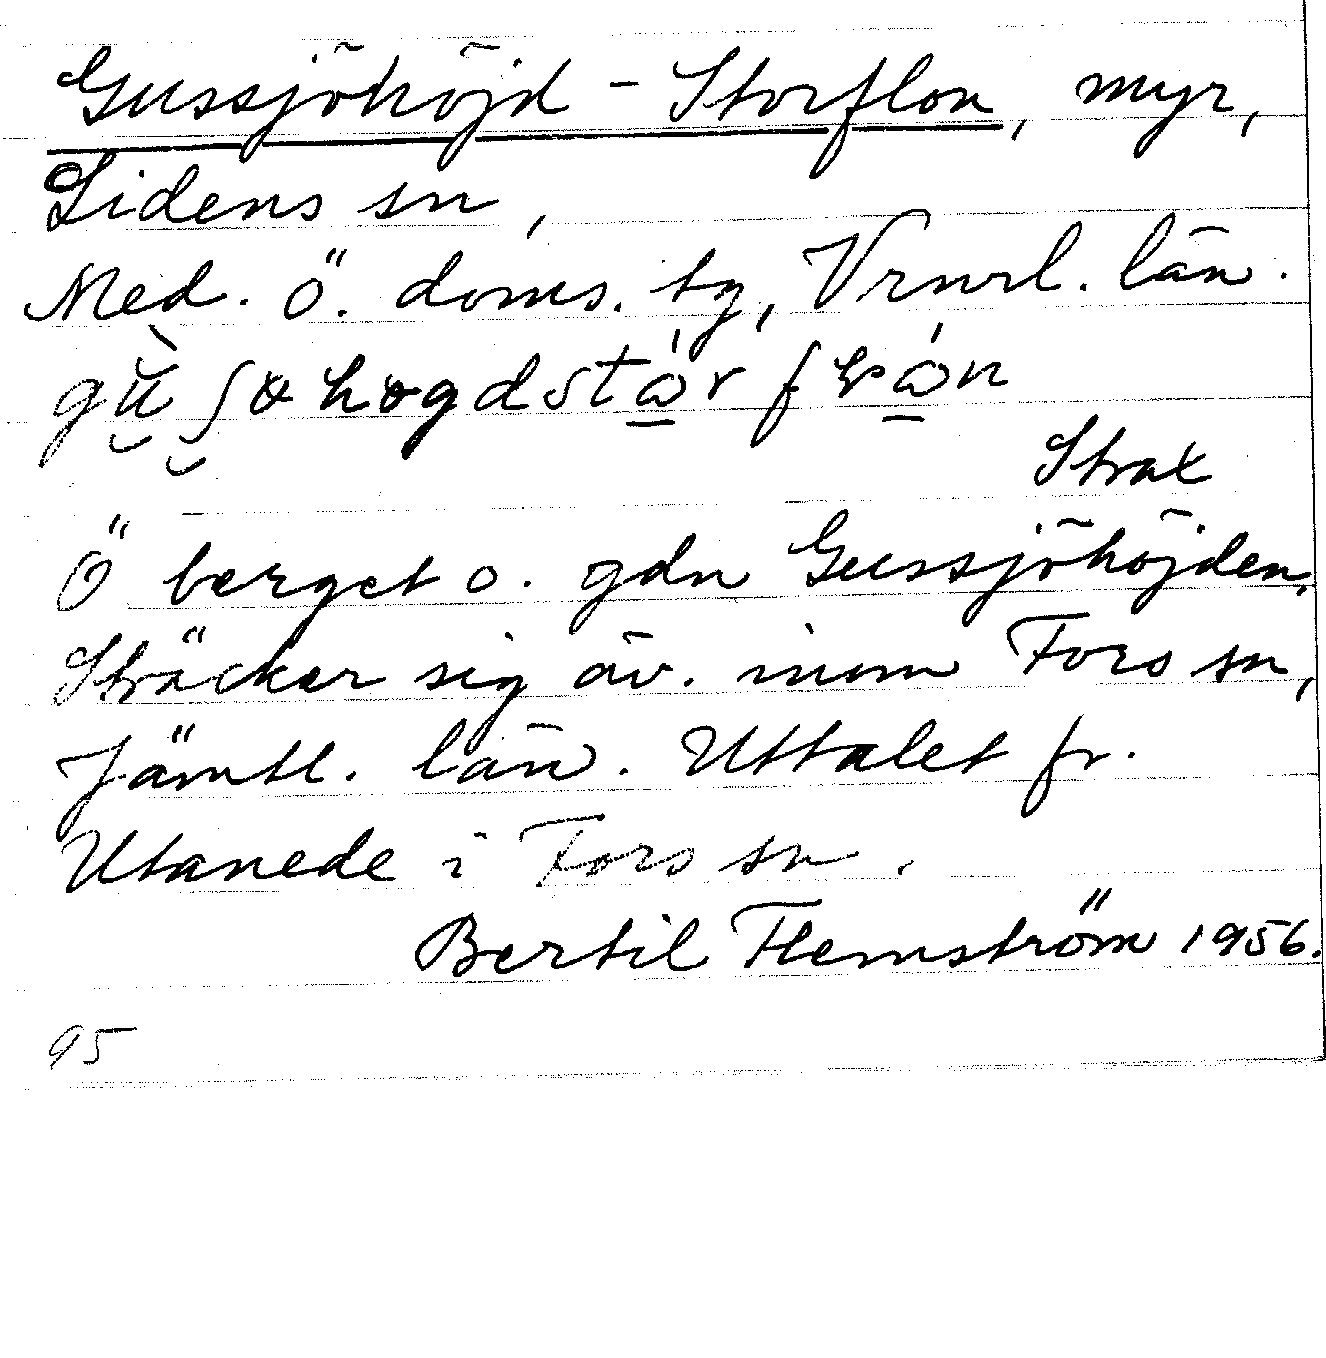 Gussjöhöjd - Storflon, myr,
Lidens sn,
Med. Ö. doms. tg, Vrnrl. län.
Strax
Ö berget o. gdn Gussjöhöjden,
Sträcker sig äv. inom Fors sn,
Jämtl. län. Uttalet fr.
Utanede i Fors sn.
Bertil Flemström 1956.
95